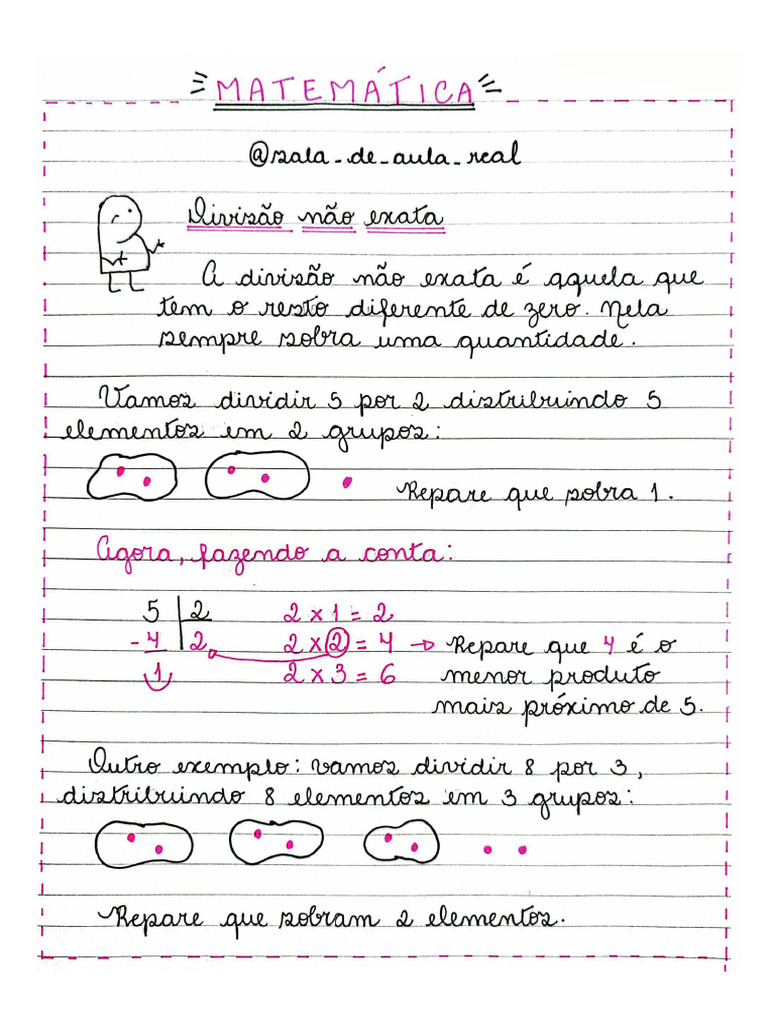 MATEMÁTICA
@sala_de_aula_real
Divisão não exata
A divisão não exata é aquela que
tem o resto diferente de zero. Nela
sempre sobra uma quantidade.
Vamos dividir 5 por 2 distribuindo 5
elementos em 2 grupos:
Repare que sobra 1.
Agora, fazendo a conta:
5 2 2 x 1 = 2
- 4 2 2 x 2 = 4 → Repare que 4 é o
1 2 x 3 = 6 menor produto
mais próximo de 5.
Outro exemplo: vamos dividir 8 por 3,
distribuindo 8 elementos em 3 grupos:
Repare que sobram 2 elementos.